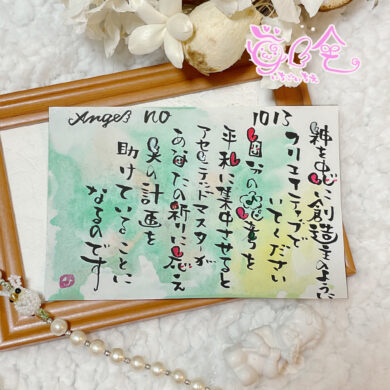 Angel n.o 1013
神を中心に創造主のように
クリエイティブで
いてください
自分のお心を
平和に集中させると
アセンデッドマスターが
あなたの祈りに応え
天の計画を
助けていることに
なるのです